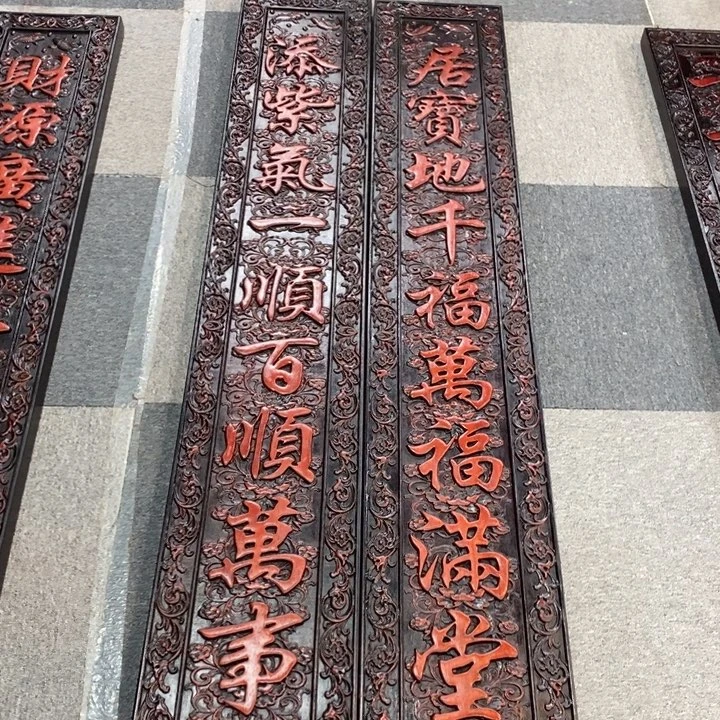 居寶地千福萬福滿堂
添紫氣一順百順萬事
財源廣進